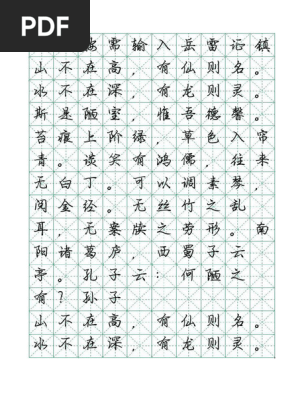 PDF
需输入岳雷记镇
山不在高，有仙则名。
水不在深，有龙则灵。
斯是陋室，惟吾德馨。
苔痕上阶绿，草色入帘
青。谈笑有鸿儒，往来
无白丁。可以调素琴，
阅金经。无丝竹之乱
耳，无案牍之劳形。南
阳诸葛庐，西蜀子云
亭。孔子云：何陋之
有？孙子
山不在高，有仙则名。
水不在深，有龙则灵。